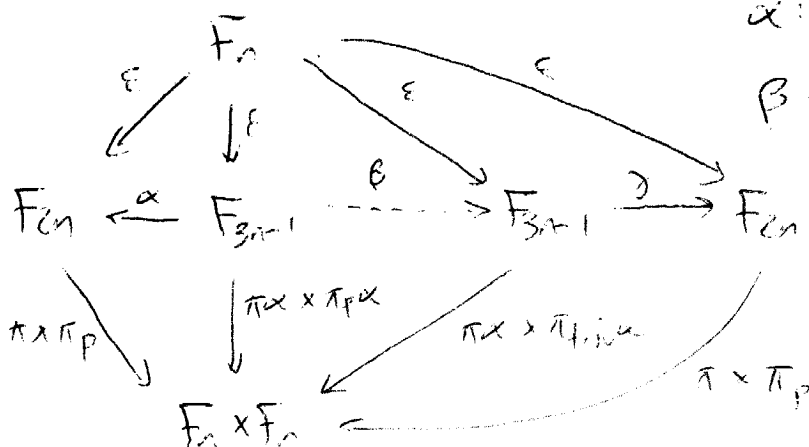 α :
F_n
ε ε ε ε
β
F_{2n} α F_{3n-1} F_{3n-1} F_{2n}
π × π_p πα × π_pα π × π_p
F_n × F_n